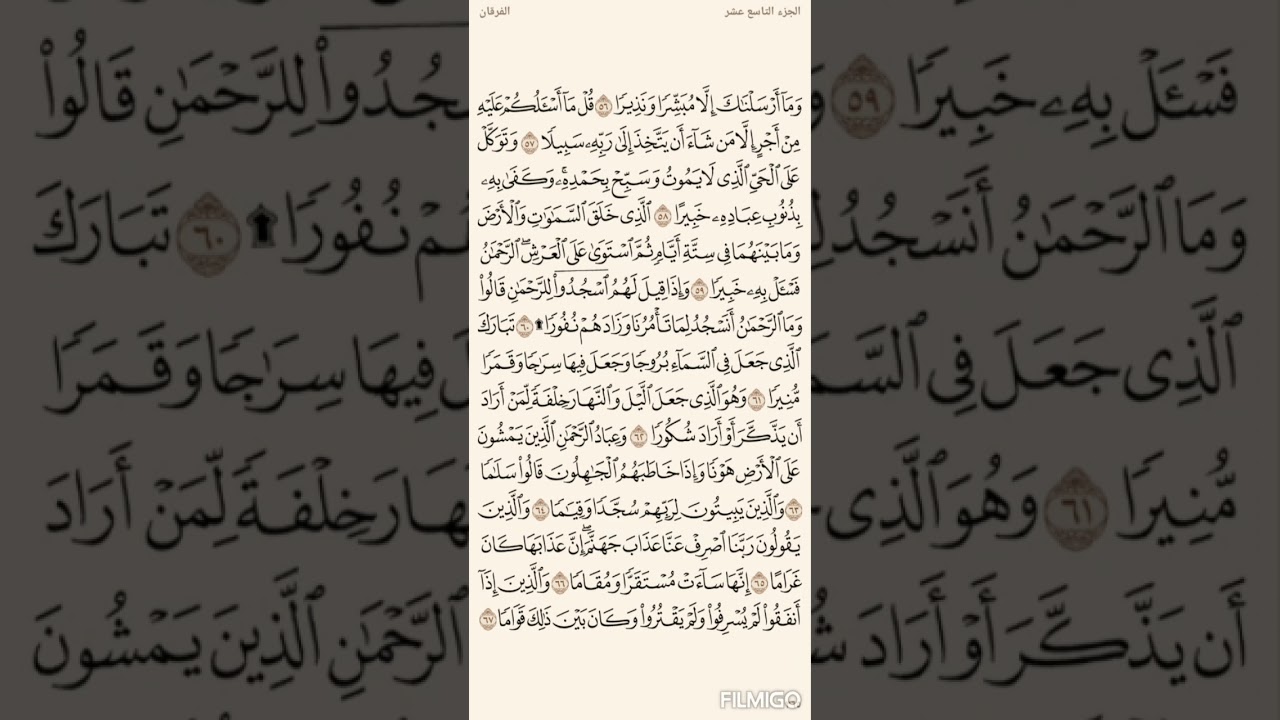 الجزء التاسع عشر الفرقان
وَمَآ أَرۡسَلۡنَٰكَ إِلَّا مُبَشِّرٗا وَنَذِيرٗا ٥٦ قُلۡ مَآ أَسۡـَٔلُكُمۡ عَلَيۡهِ
مِنۡ أَجۡرٍ إِلَّا مَن شَآءَ أَن يَتَّخِذَ إِلَىٰ رَبِّهِۦ سَبِيلٗا ٥٧ وَتَوَكَّلۡ
عَلَى ٱلۡحَيِّ ٱلَّذِي لَا يَمُوتُ وَسَبِّحۡ بِحَمۡدِهِۦۚ وَكَفَىٰ بِهِۦ
بِذُنُوبِ عِبَادِهِۦ خَبِيرًا ٥٨ ٱلَّذِي خَلَقَ ٱلسَّمَٰوَٰتِ وَٱلۡأَرۡضَ
وَمَا بَيۡنَهُمَا فِي سِتَّةِ أَيَّامٖ ثُمَّ ٱسۡتَوَىٰ عَلَى ٱلۡعَرۡشِۖ ٱلرَّحۡمَٰنُ
فَسۡـَٔلۡ بِهِۦ خَبِيرٗا ٥٩ وَإِذَا قِيلَ لَهُمُ ٱسۡجُدُواْۤ لِلرَّحۡمَٰنِ قَالُواْ
وَمَا ٱلرَّحۡمَٰنُ أَنَسۡجُدُ لِمَا تَأۡمُرُنَا وَزَادَهُمۡ نُفُورٗا۩ ٦٠ تَبَارَكَ
ٱلَّذِي جَعَلَ فِي ٱلسَّمَآءِ بُرُوجٗا وَجَعَلَ فِيهَا سِرَٰجٗا وَقَمَرٗا
مُّنِيرٗا ٦١ وَهُوَ ٱلَّذِي جَعَلَ ٱلَّيۡلَ وَٱلنَّهَارَ خِلۡفَةٗ لِّمَنۡ أَرَادَ
أَن يَذَّكَّرَ أَوۡ أَرَادَ شُكُورٗا ٦٢ وَعِبَادُ ٱلرَّحۡمَٰنِ ٱلَّذِينَ يَمۡشُونَ
عَلَى ٱلۡأَرۡضِ هَوۡنٗا وَإِذَا خَاطَبَهُمُ ٱلۡجَٰهِلُونَ قَالُواْ سَلَٰمٗا
٦٣ وَٱلَّذِينَ يَبِيتُونَ لِرَبِّهِمۡ سُجَّدٗا وَقِيَٰمٗا ٦٤ وَٱلَّذِينَ
يَقُولُونَ رَبَّنَا ٱصۡرِفۡ عَنَّا عَذَابَ جَهَنَّمَۖ إِنَّ عَذَابَهَا كَانَ
غَرَامًا ٦٥ إِنَّهَا سَآءَتۡ مُسۡتَقَرّٗا وَمُقَامٗا ٦٦ وَٱلَّذِينَ إِذَآ
أَنفَقُواْ لَمۡ يُسۡرِفُواْ وَلَمۡ يَقۡتُرُواْ وَكَانَ بَيۡنَ ذَٰلِكَ قَوَامٗا ٦٧
FILMIGO